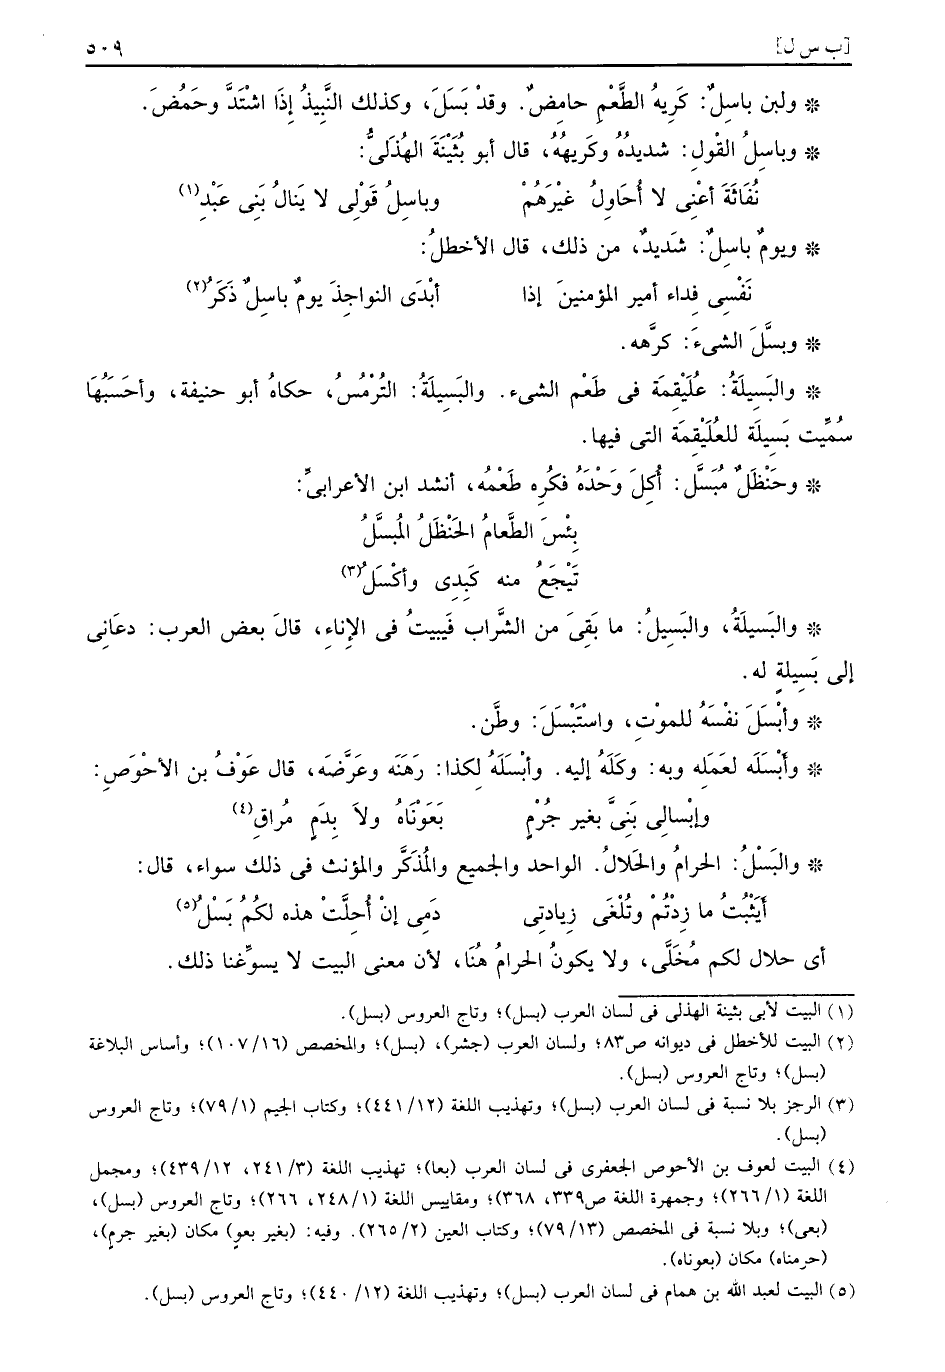 [ب س ل] ٥٠٩
* ولبن باسِلٌ: كَرِيهُ الطَّعْمِ حامِضٌ. وقدْ بَسَلَ، وكذلك النَّبِيذُ إذَا اشْتَدَّ وحَمُضَ.
* وباسِلُ القَوْلِ: شديدُهُ وكَرِيهُهُ، قال أبو بُثَيْنَةَ الهُذَلىُّ:
نُفَاثَةَ أعْنِى لا أُحَاوِلُ غيْرَهُمْ وباسِلُ قَوْلِى لا يَنَالُ بَنِى عَبْدِ(١)
* ويومٌ باسِلٌ: شَدِيدٌ، من ذلك، قال الأخطلُ:
نَفْسِى فِداء أمير المؤمنينَ إذا أبْدَى النواجِذَ يومٌ باسِلٌ ذَكَرُ(٢)
* وبسَّلَ الشىءَ: كرَّهه.
* والبَسِيلَةُ: عُلَيْقِمَة فى طَعْم الشىء. والبَسِيلَةُ: التُرْمُسُ، حكاهُ أبو حنيفة، وأحَسَبُهَا
سُمِّيت بَسِيلَة للعُلَيْقِمَة التى فيها.
* وحَنْظَلٌ مُبَسَّل: أُكِلَ وَحْدَهُ فكُرِه طَعْمُه، أنشد ابن الأعرابىِّ:
بِئْسَ الطَّعامُ الحَنْظَلُ المُبسَّلُ
تَيْجَعُ منه كَبِدِى وأكْسَلُ(٣)
* والبَسِيلَةُ، والبَسِيلُ: ما بَقِىَ من الشَّراب فَيبيتُ فى الإناءِ، قالَ بعض العرب: دعَانِى
إلى بَسِيلةٍ له.
* وأبْسَلَ نفْسَهُ للموْتِ، واسْتَبْسَلَ: وطَّن.
* وأَبْسَلَه لعَمَلِه وبه: وكَلَهُ إليه. وأبْسَلَهُ لكذا: رَهَنَه وعَرَّضَه، قال عَوْفُ بن الأحْوَصِ:
وإبْسالِى بَنِىَّ بغير جُرْمٍ بَعَوْنَاهُ ولاَ بِدَمٍ مُراقِ(٤)
* والبَسْلُ: الحرامُ والحَلالُ. الواحد والجميع والمُذَكَّر والمؤنث فى ذلك سواء، قال:
أَيَثْبُتُ ما زِدْتُمْ وتُلْغَى زِيادتِى دَمِى إنْ أُحِلَّتْ هذه لكمُ بَسْلُ(٥)
أى حلال لكم مُخَلَّى، ولا يكونُ الحرامُ هُنَا، لأن معنى البيت لا يسوِّغنا ذلك.
(١) البيت لأبى بثينة الهذلى فى لسان العرب (بسل)؛ وتاج العروس (بسل).
(٢) البيت للأخطل فى ديوانه ص٨٣؛ ولسان العرب (جشر)، (بسل)؛ والمخصص (١٠٧/١٦)؛ وأساس البلاغة
(بسل)؛ وتاج العروس (بسل).
(٣) الرجز بلا نسبة فى لسان العرب (بسل)؛ وتهذيب اللغة (٤٤١/١٢)؛ وكتاب الجيم (٧٩/١)؛ وتاج العروس
(بسل).
(٤) البيت لعوف بن الأحوص الجعفرى فى لسان العرب (بعا)؛ تهذيب اللغة (٢٤١/٣، ٤٣٩/١٢)؛ ومجمل
اللغة (٢٦٦/١)؛ وجمهرة اللغة ص٣٣٩، ٣٦٨)؛ ومقاييس اللغة (٢٤٨/١، ٢٦٦)؛ وتاج العروس (بسل)،
(بعى)؛ وبلا نسبة فى المخصص (٧٩/١٣)؛ وكتاب العين (٢٦٥/٢). وفيه: (بغير بعوٍ) مكان (بغير جرمٍ)،
(حرمناه) مكان (بعوناه).
(٥) البيت لعبد الله بن همام فى لسان العرب (بسل)؛ وتهذيب اللغة (٤٤٠/١٢)؛ وتاج العروس (بسل).